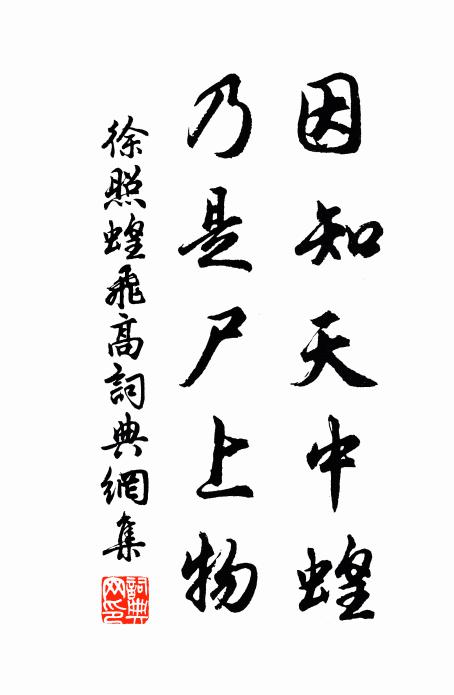 因知天中蝗
乃是尸上物
徐照蝗飛高詞典網集
詞典網印